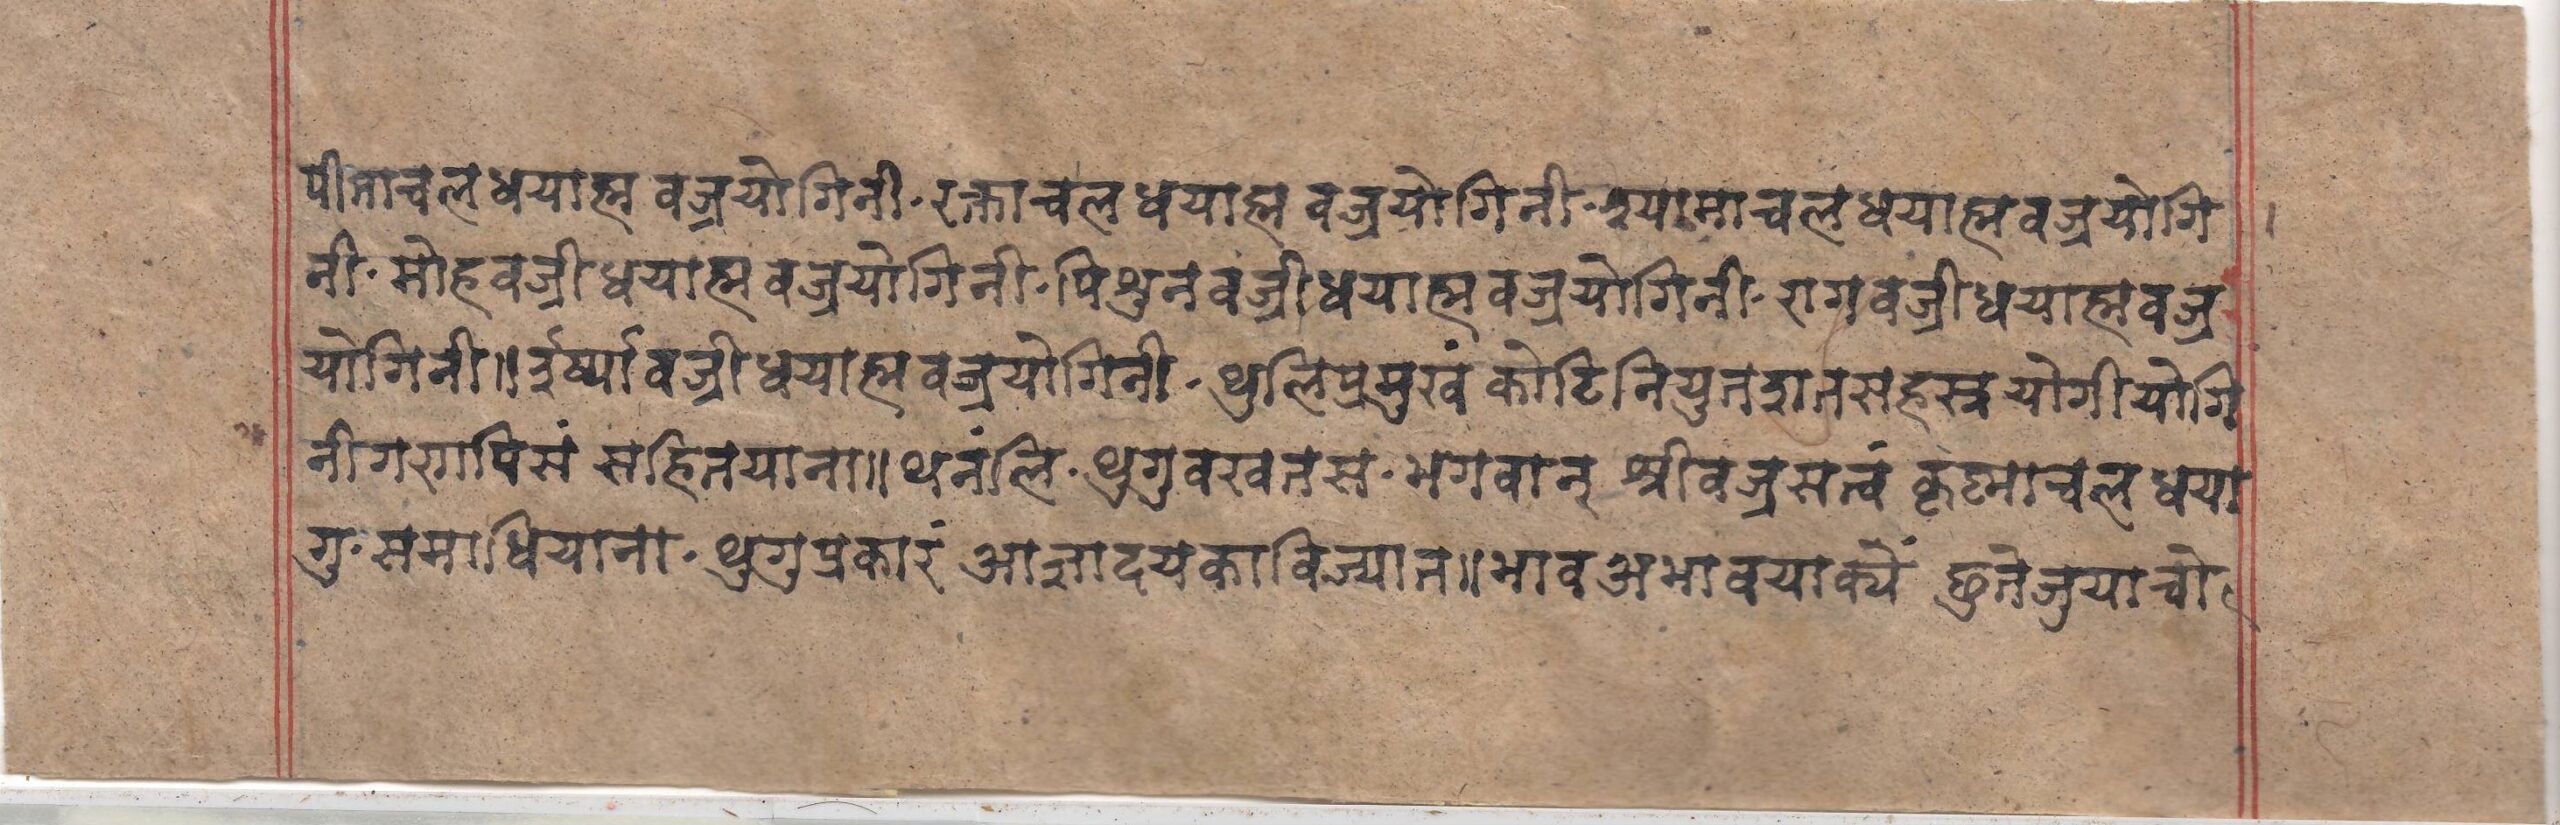 पीताचलधयाह्म वज्रयोगिनी·रक्ताचलधयाह्म वज्रयोगिनी·श्यामाचलधयाह्मवज्रयोगि
नी·मोहवज्रीधयाह्मवज्रयोगिनी·पिशुनवज्रीधयाह्मवज्रयोगिनी·रागवज्रीधयाह्मवज्र
योगिनी॥ईर्ष्यावज्रीधयाह्मवज्रयोगिनी·थुलिप्रमुखं कोटिनियुतशतसहस्रयोगीयोगि
नीगणपिसं सहितयाना॥थनंलि·थुगुवखतस·भगवान् श्रीवज्रसत्वं कृष्माचलधया
गु·समाधियाना·थुगुप्रकारं आज्ञादयकाविज्यात॥भावअभावयाक्यें छुतेजुयाचो